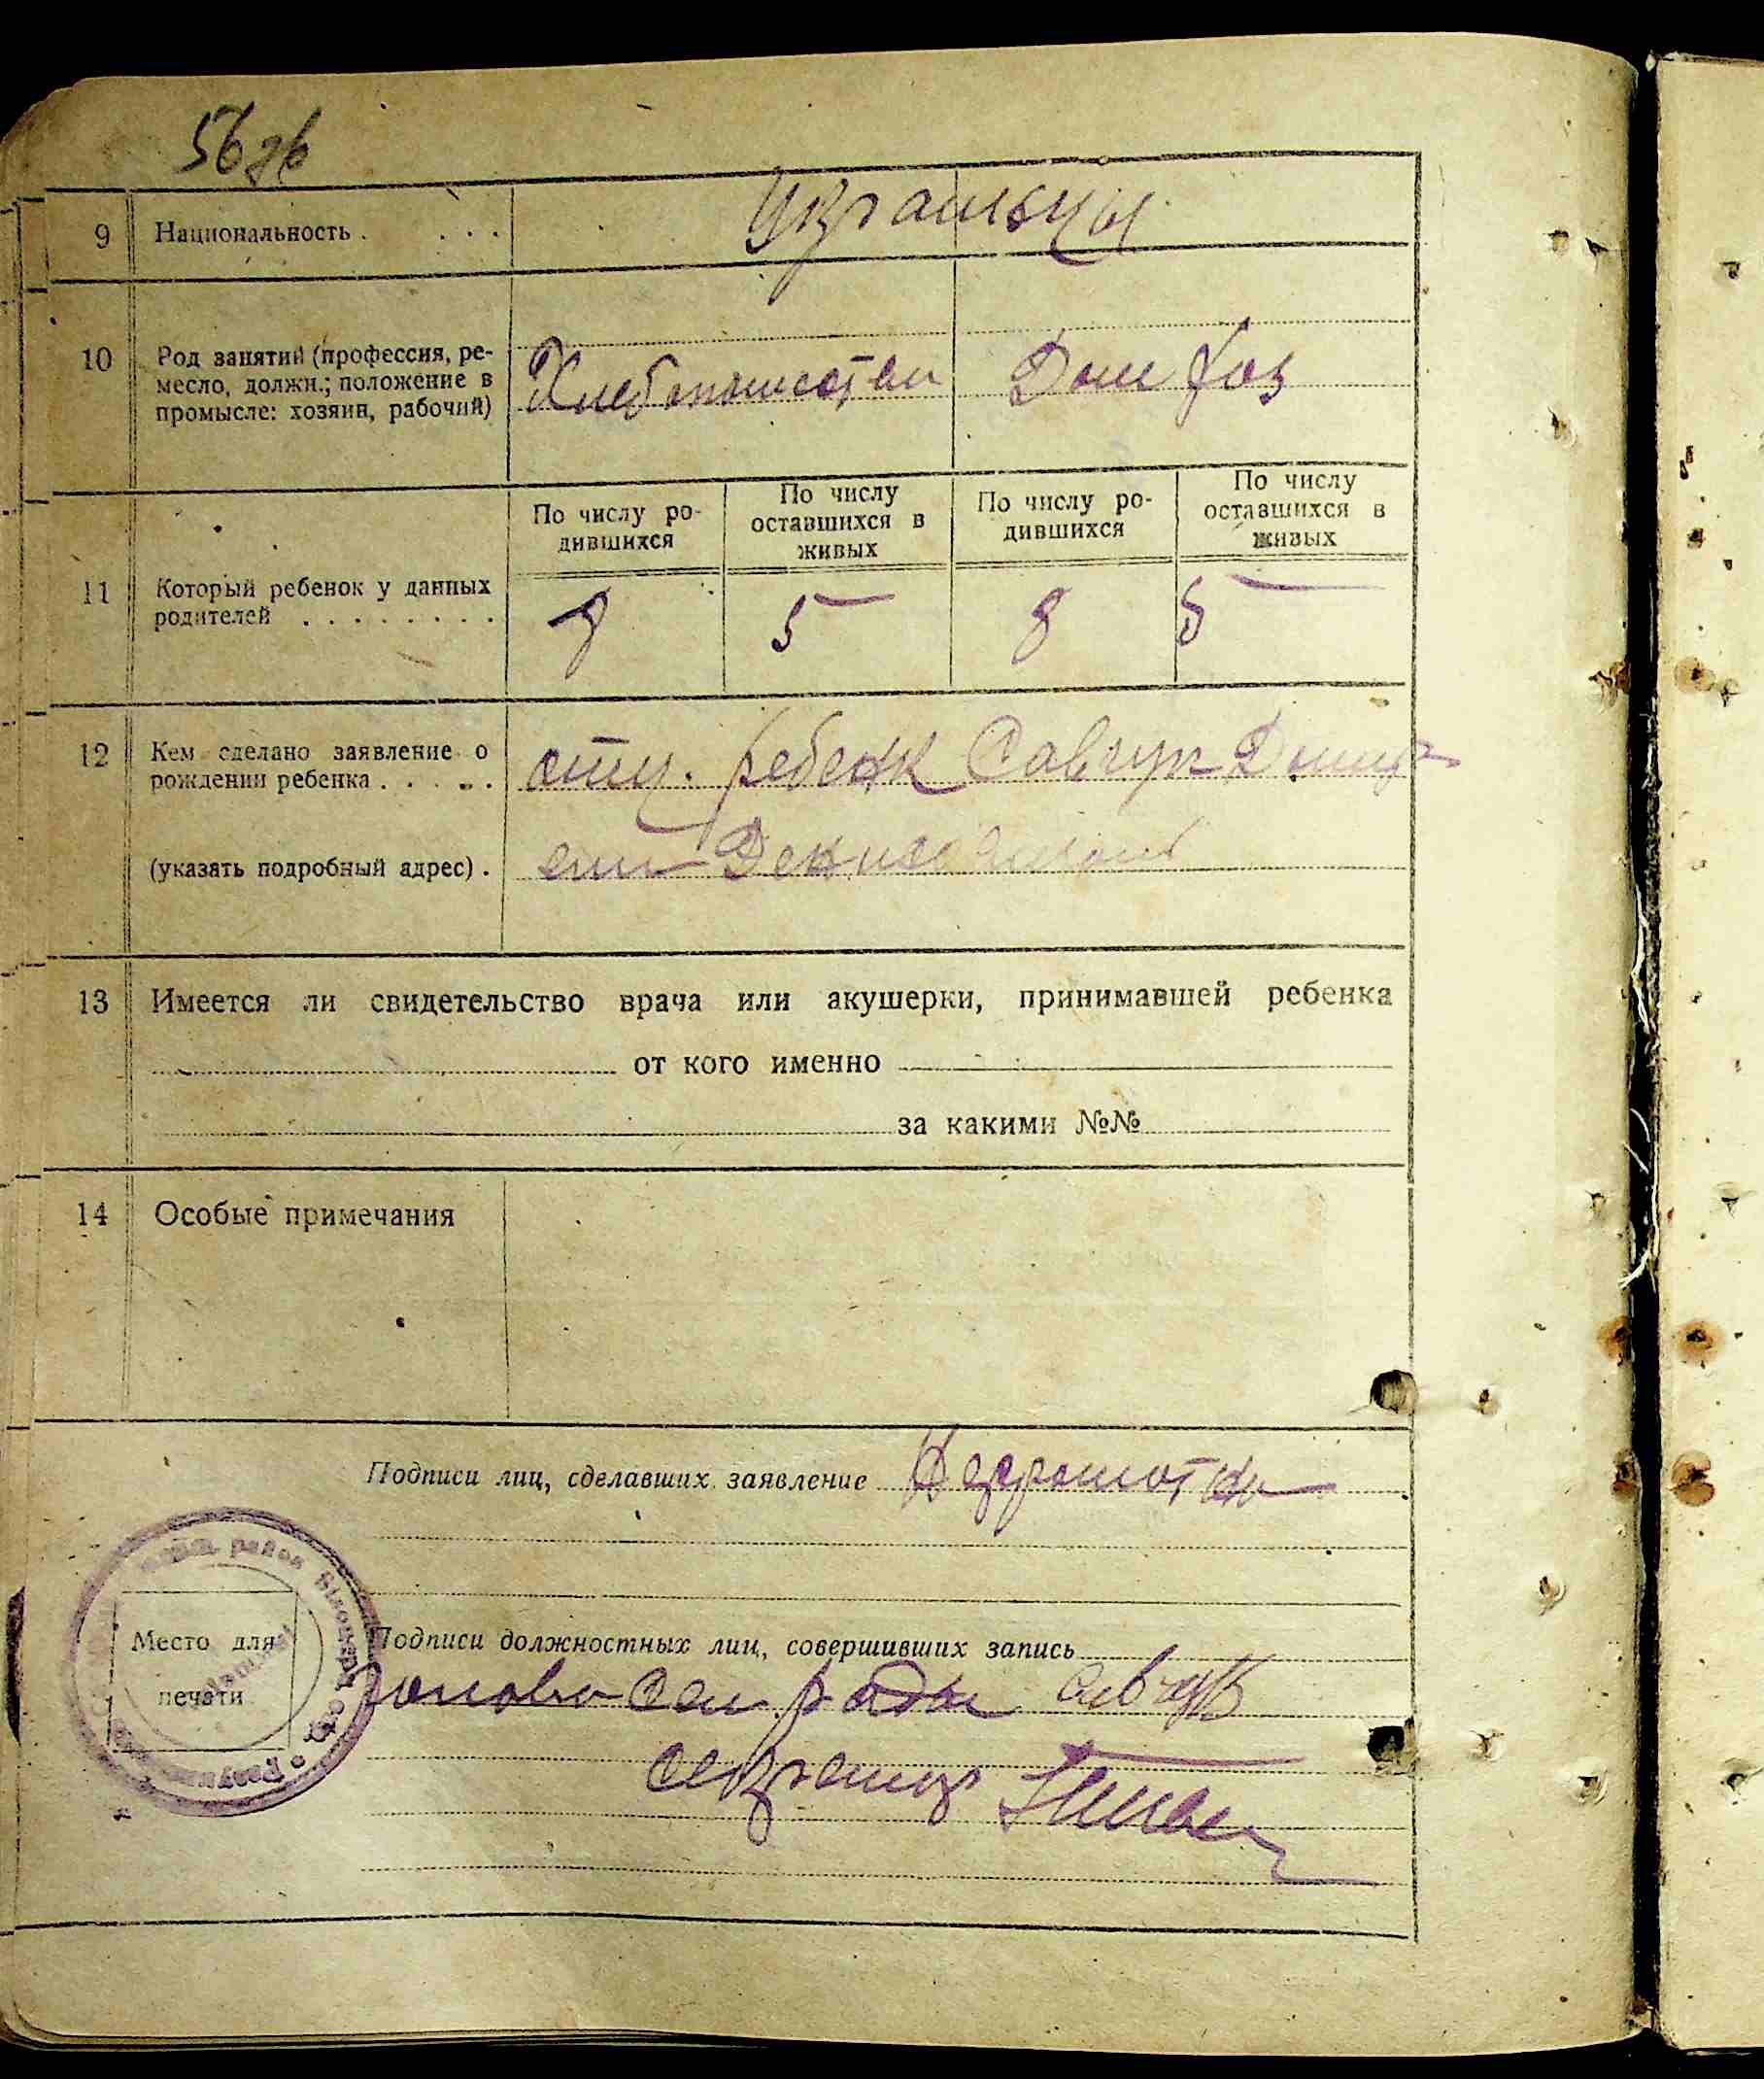 56 зв
9 Национальность . . . . Украиньцы
10 Род занятий (профессия, ре-
месло, должн.; положение в
промысле: хозяин, рабочий)
Хлебопашество Дом Хоз
По числу ро-
дившихся
По числу
оставшихся в
живых
По числу ро-
дившихся
По числу
оставшихся в
живых
11 Который ребенок у данных
родителей . . . . . . . .
8 5 8 5
12 Кем сделано заявление о
рождении ребенка . . . . .
отц. ребенк Савчук
(указать подробный адрес) .
13 Имеется ли свидетельство врача или акушерки, принимавшей ребенка
от кого именно
за какими №№
14 Особые примечания
Подписи лиц, сделавших заявление Неграмотны
район
Место для
печати
Подписи должностных лиц, совершивших запись
Голова Сел рады Савчук
секретар